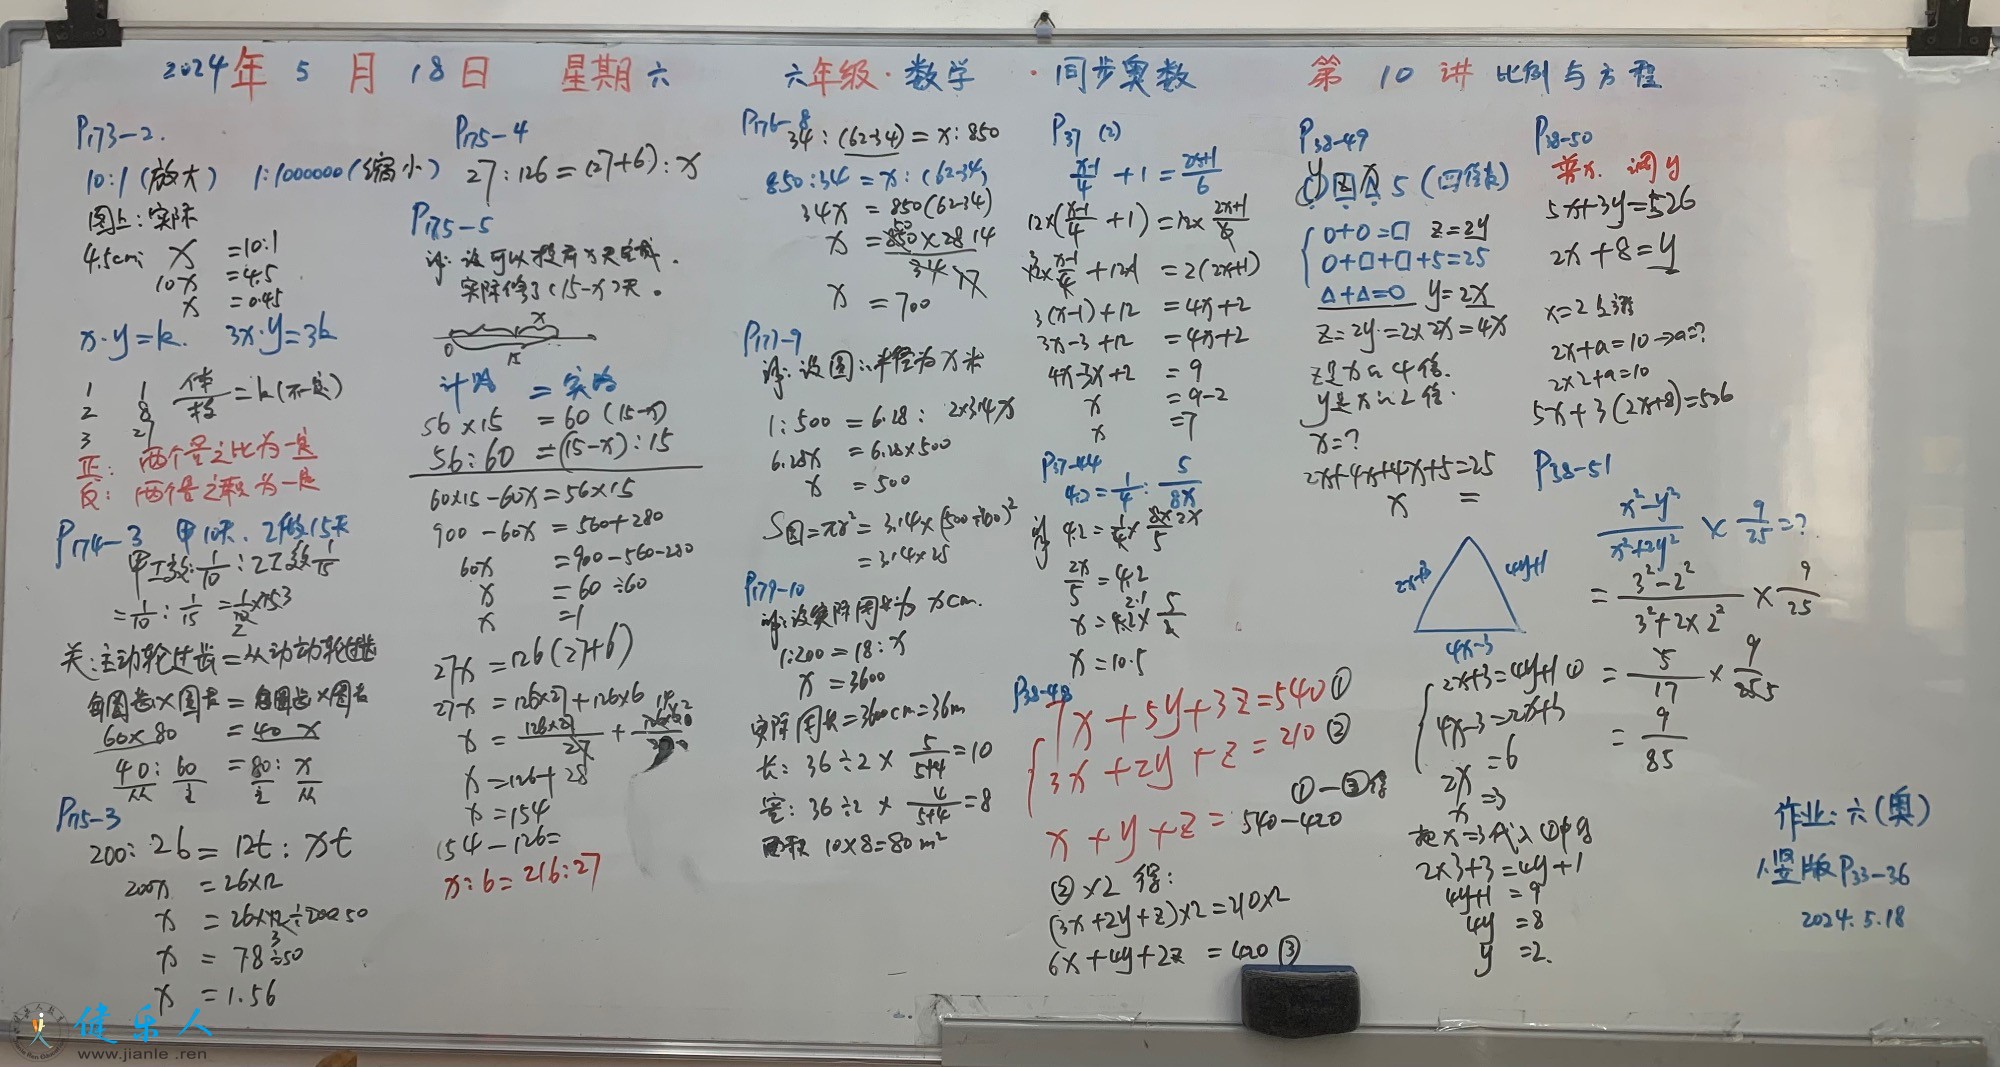 2024年5月18日 星期六 六年级·数学·同步奥数 第10讲 比例与方程
P173-2.
10:1(放大) 1:1000000(缩小)
图上:实际
4.5cm: x =10:1
10x =4.5
x =0.45
x·y=k. 3x·y=3k
1 1
2 8
3 27
体/棱=k(不定)
正: 两个量之比为一定
反: 两个量之积为一定
P174-3 甲10天. 乙做15天
甲工效:1/10 : 乙工效1/15
=1/10 : 1/15 =1/10×15 3
2
关:主动轮过齿=从动动轮过齿
每圈齿×圈数=每圈齿×圈数
60×80 =40 x
40:60 =80:x
从 主 主 从
P175-3
200:26=12t:xt
200x =26×12
x =26×12÷200 50
3
x =78÷50
x =1.56
P175-4
27:126=(27+6):x
P175-5
解:设可以提前x天完成.
实际修了(15-x)天。
x
0
15
计划 =实际
56×15 =60(15-x)
56:60 =(15-x):15
60×15-60x=56×15
900-60x=560+280
60x =900-560-280
x =60÷60
x =1
27x=126(27+6)
27x=126×27+126×6
x=126×27/27+
x=126+28
x=154
154-126=
x:6=216:27
P176-8
34:(62-34)=x:850
850:34=x:(62-34)
34x=850(62-34)
x=850×28 14
34 17
x =700
P177-9
解:设圆:半径为x米
1:500=6.28:2×3.14x
6.28x =6.28×500
x =500
S圆=πr²=3.14×(500÷100)²
=3.14×25
P179-10
解:设实际周长为xcm.
1:200=18:x
x=3600
实际周长=3600cm=36m
长:36÷2×5/5+4=10
宽:36÷2×4/5+4=8
面积 10×8=80m²
P37 (2)
x-1/4+1=2x+1/6
12×(x-1/4+1)=12×2x+1/6
3
12×x-1/4+12×1=2(2x+1)
3(x-1)+12 =4x+2
3x-3+12 =4x+2
4x-3x+2 =9
x =9-2
x =7
P37-44
4.2=1/4:5/8x
解 4.2=1/4×8x/5 2x
2x/5=4.2
2.1
x=4.2×5/2
x=10.5
P38-48
7x+5y+3z=540①
3x+2y+z=210②
①-③得
x+y+z=540-420
②×2得:
(3x+2y+z)×2=210×2
6x+4y+2z=420③
P38-49
y z x
○□△5(四位数)
○+○=□ z=2y
○+□+□+5=25
△+△=○ y=2x
z=2y=2×2x=4x
z是x的4倍.
y是x的2倍.
x=?
2x+4x+4x+5=25
x =
2x+3
4y+1
4x-3
2x+3=4y+1①
4x-3=2x+3
2x =6
x =3
把x=3代入①中得
2×3+3=4y+1
4y+1=9
4y =8
y =2.
P38-50
5x+3y=526
2x+8=y
2x+a=10→a=?
2×2+a=10
5x+3(2x+8)=526
P38-51
x²-y²/x²+2y²×9/25=?
=3²-2²/3²+2×2²×9/25
=5/17×9/25 5
=9/85
作业:六(奥)
1.竖版P33-36
2024.5.18
健乐人
www.jianle.ren